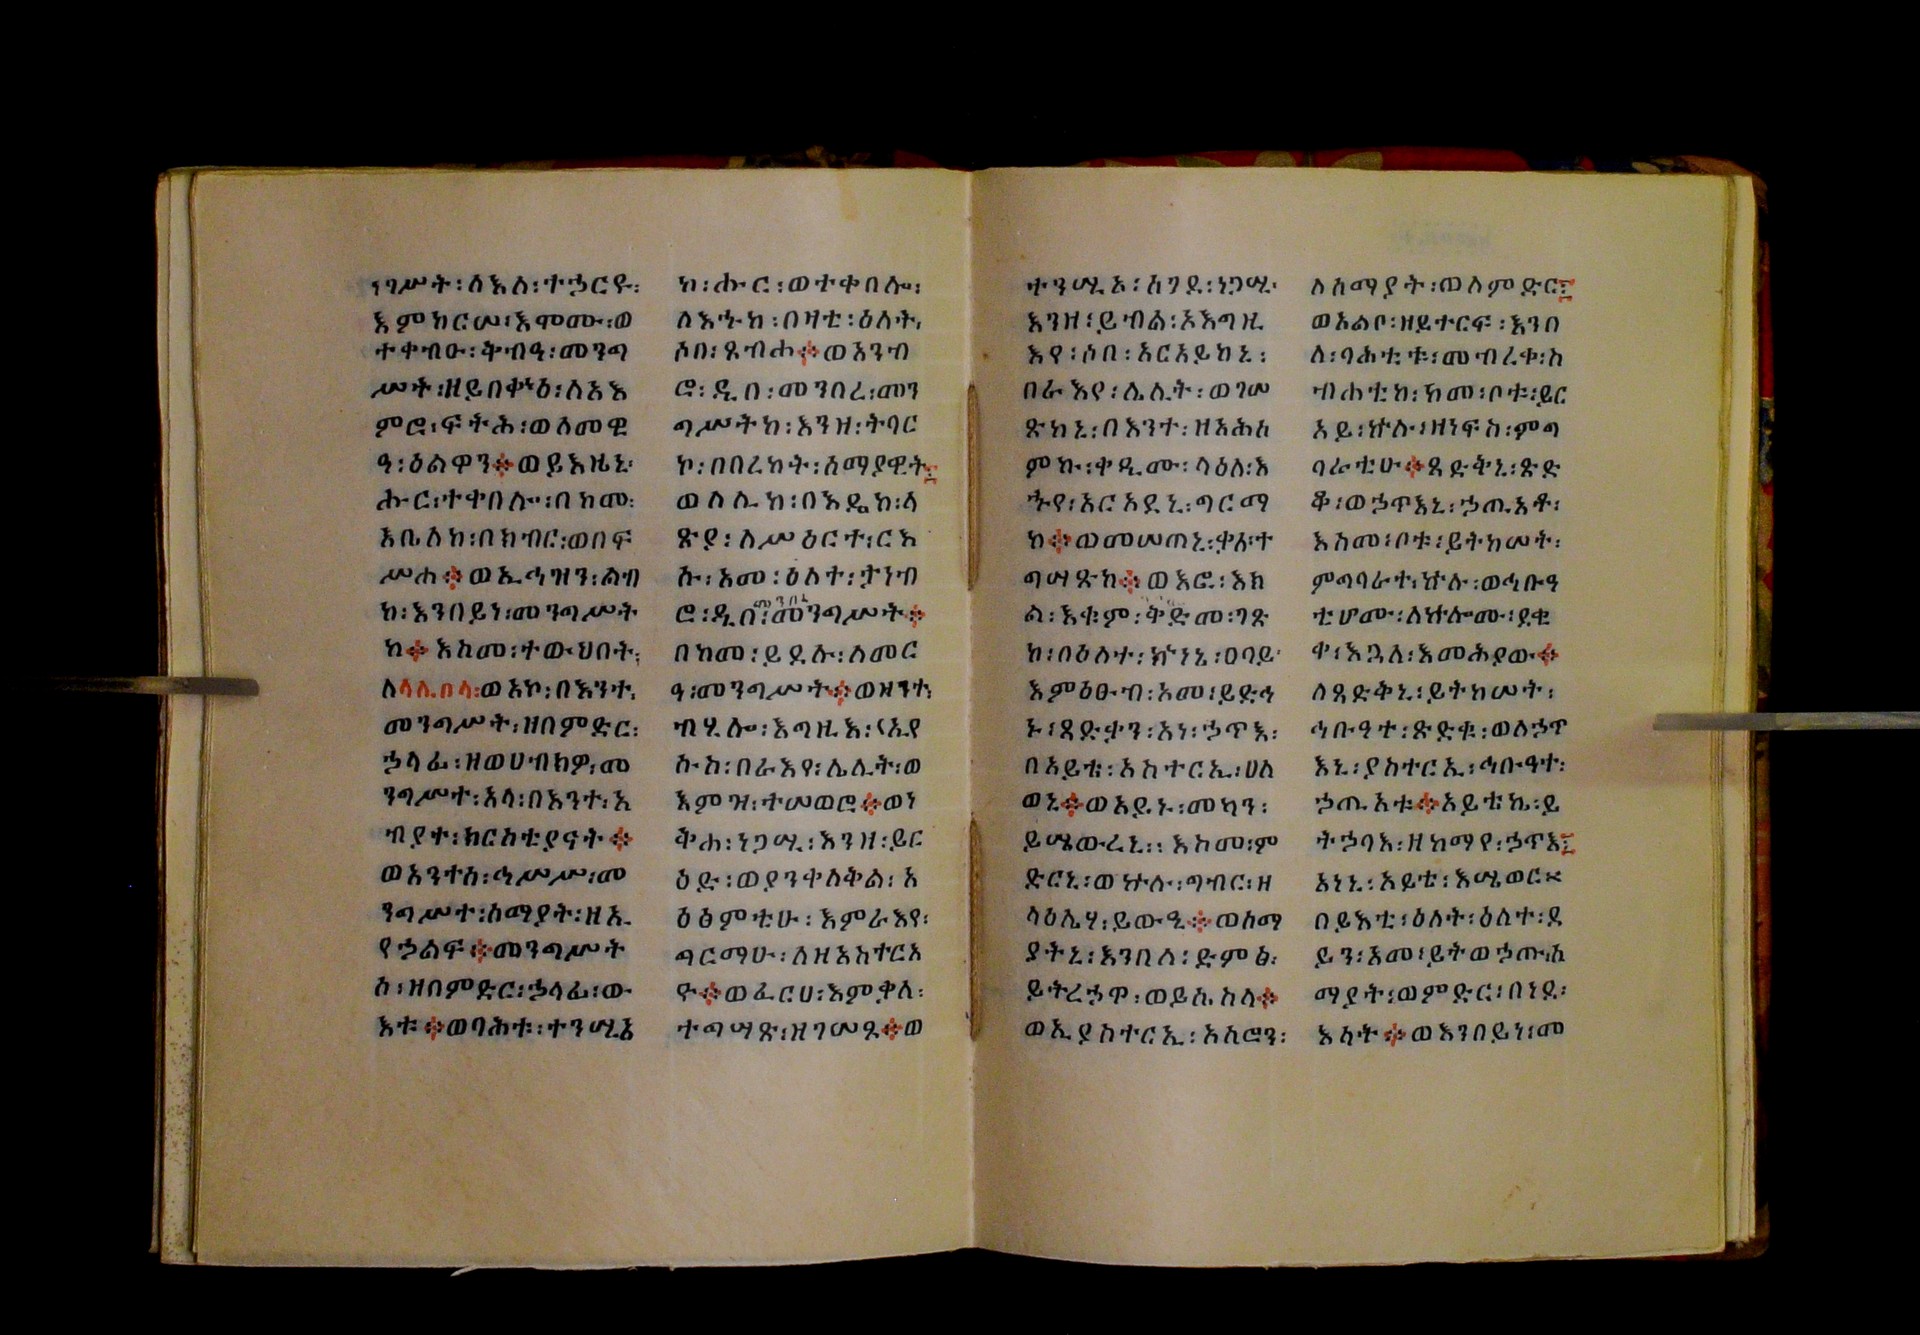 ነግሥት፡ለእለ፡ተኃርዩ፡
እምክርሠ፡እሞሙ፡ወ
ተቀብዑ፡ቅብዓ፡መንግ
ሥት፡ዘይበቍዕ፡ለአእ
ምሮ፡ፍትሕ፡ወለመዊ
ዓ፡ዕልዋን፨ወይእዜኒ፡
ሑር፡ተቀበሎ፡በከመ፡
አቤለከ፡በክብር፡ወበፍ
ሥሐ፨ወኢኅዝን፡ልብ
ከ፡እንበይነ፡መንግሥት
ከ፨እስመ፡ተውህበት፡
ለላሊበላ፡ወአኮ፡በእንተ፡
መንግሥት፡ዘበምድር፡
ኃላፊ፡ዘወሀብክዎ፡መ
ንግሥተ፡አላ፡በእንተ፡አ
ብያተ፡ክርስቲያናት፨
ወአንተሰ፡ኅሥሥ፡መ
ንግሥተ፡ሰማያት፡ዘኢ
የኃልፍ፨መንግሥት
ሰ፡ዘበምድር፡ኃላፊ፡ው
እቱ፨ወባሕቱ፡ተንሢኤ
ከ፡ሑር፡ወተቀበሎ፡
ለእኁከ፡በዛቲ፡ዕለት፡
ሶበ፡ጸብሐ፨ወአንብ
ሮ፡ዲበ፡መንበረ፡መን
ግሥትከ፡እንዘ፡ትባር
ኮ፡በበረከት፡ሰማያዊት፡
ወለሊከ፡በእዴከ፡ላ
ጽያ፡ለሥዕርተ፡ርእ
ሱ፡አመ፡ዕለተ፡ታነብ
ሮ፡ዲበ፡መንበረ፡መንግሥት፨
በከመ፡ይደሉ፡ለመር
ዓ፡መንግሥት፨ወዝንተ፡
ብሂሎ፡እግዚእ፡ኢየ
ሱስ፡በራእየ፡ሌሊት፡ወ
እምዝ፡ተሠወሮ፨ወነ
ቅሐ፡ነጋሢ፡እንዘ፡ይር
ዕድ፡ወያንቀለቅል፡አ
ዕፅምቲሁ፡እምራእየ፡
ግርማሁ፡ለዘአስተርአ
ዮ፨ወፈርሀ፡እምቃለ፡
ተግሣጽ፡ዘገሠጾ፨ወ
ተንሢኦ፡ሰገደ፡ነጋሢ፡
እንዘ፡ይብል፡ኦእግዚ
እየ፡ሶበ፡አርአይከኒ፡
በራእየ፡ሌሊት፡ወገሠ
ጽከኒ፡በእንተ፡ዘአሕሰ
ምኩ፡ቀዲሙ፡ላዕለ፡እ
ኁየ፡አርአደኒ፡ግርማ
ከ፨ወመሠጠኒ፡ቃለ፡ተ
ግሣጽከ፨ወእፎ፡እክ
ል፡እቁም፡ቅድመ፡ገጽ
ከ፡በዕለተ፡ኵነኔ፡ዐባይ፡
እምዕፁብ፡አመ፡ይድኅ
ኑ፡ጻድቃን፡አነ፡ኃጥእ፡
በአይቴ፡አስተርኢ፡ሀለ
ወኒ፨ወአይኑ፡መካን፡
ይሜውረኒ፡፡እስመ፡ም
ድርኒ፡ወኵሉ፡ግብር፡ዘ
ላዕሌሃ፡ይውዒ፨ወሰማ
ያትኒ፡እንበለ፡ድምፅ፡
ይትረኃው፡ወይሴስላ፨
ወኢያስተርኢ፡አሰሮን፡
ለሰማያት፡ወለምድር፡
ወአልቦ፡ዘይተርፍ፡እንበ
ለ፡ባሕቲቱ፡መብረቀ፡ስ
ብሐቲከ፡ከመ፡ቦቱ፡ይር
አይ፡ኵሉ፡ዘነፍስ፡ምግ
ባራቲሁ፨ጻድቅኒ፡ጽድ
ቆ፡ወኃጥእኒ፡ኃጢአቶ፡
እስመ፡ቦቱ፡ይትከሠት፡
ምግባራተ፡ኵሉ፡ወኅቡዓ
ቲሆሙ፡ለኵሎሙ፡ደቂ
ቀ፡እጓለ፡እመሕያው፨
ለጻድቅኒ፡ይትከሠት፡
ኅቡዓተ፡ጽድቁ፡ወለኃጥ
እኒ፡ያስተርኢ፡ኅቡዓተ፡
ኃጢአቱ፨አይቴኬ፡ይ
ትኃባእ፡ዘከማየ፡ኃጥእ፡
አነኒ፡አይቴ፡እሜወር፡
በይእቲ፡ዕለት፡ዕለተ፡ደ
ይን፡አመ፡ይትወኃጡ፡ሰ
ማያት፡ወምድር፡በነደ፡
እሳት፨ወእንበይነ፡መ